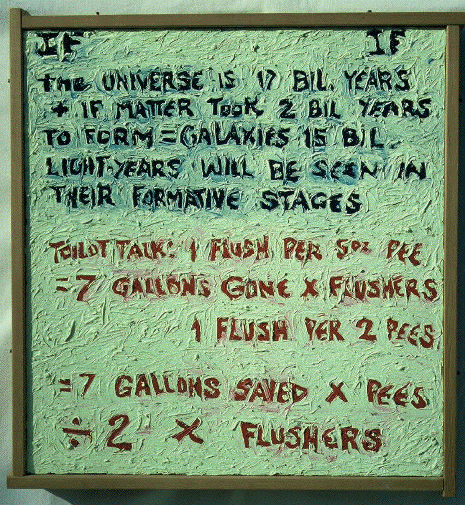 IF IF
the UNIVERSE IS 17 BIL. YEARS
+ IF MATTER TOOK 2 BIL YEARS
TO FORM = GALAXIES 15 BIL.
LIGHT-YEARS WILL BE SEEN IN
THEIR FORMATIVE STAGES
TOILOT TALK: 1 FLUSH PER 5oz PEE
= 7 GALLONS GONE X FLUSHERS
1 FLUSH PER 2 PEES
= 7 GALLONS SAVED X PEES
÷ 2 X FLUSHERS